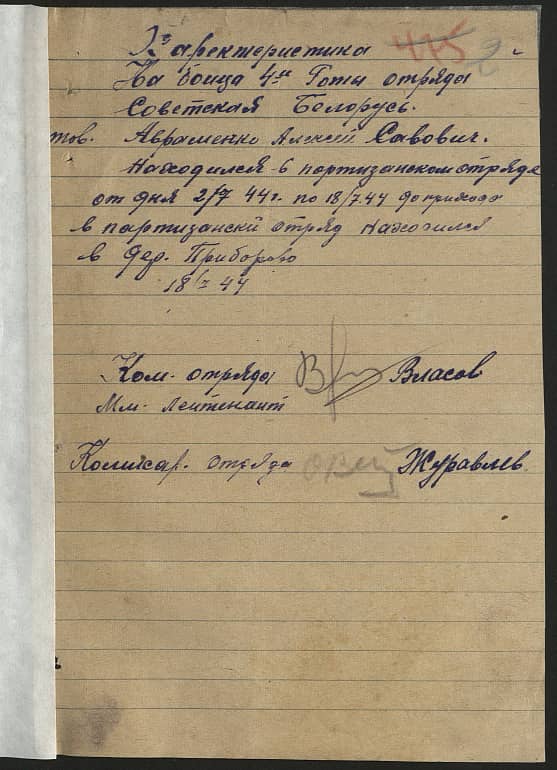 Характеристика 475 2
На бойца 4й Роты отряда
Советская Белорусь.
тов. Авраменко Алексей Савович.
Находился в партизанском отряде
от дня 2/7 44 г. по 18/7 44 до прихода
в партизанский отряд находился
в дер. Приборово
18/7 44
Ком. отряда Власов
Мл. лейтенант
Комисар. отряда Журавлев.